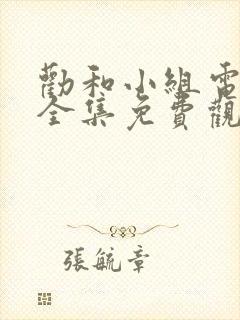 勸和小組電
全集免費觀
張毓章